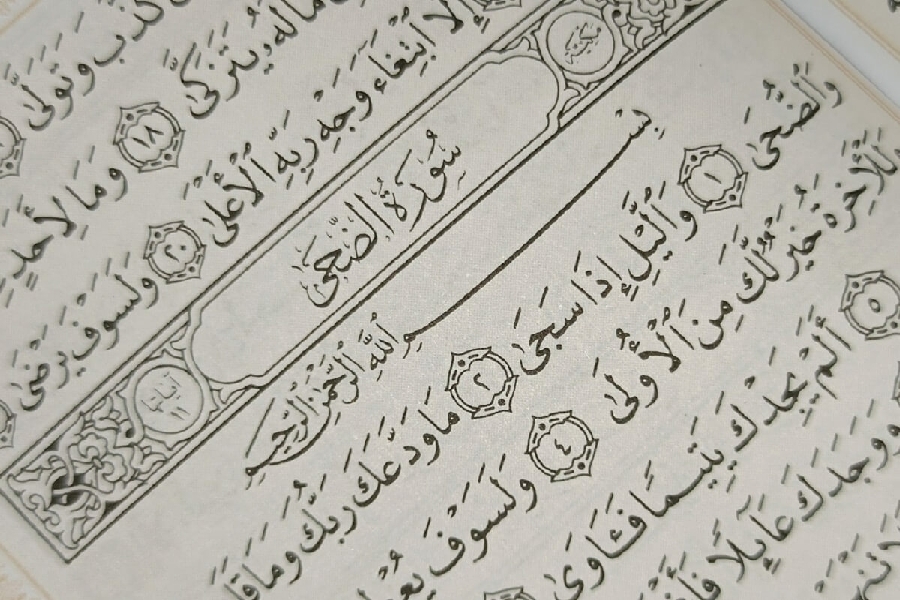 كَذَّبَ وَتَوَلَّىٰ
مَالَهُۥ يَتَزَكَّىٰ ١٨ وَمَا لِأَحَدٍ
إِلَّا ٱبْتِغَآءَ وَجْهِ رَبِّهِ ٱلْأَعْلَىٰ ٢٠ وَلَسَوْفَ يَرْضَىٰ
سُورَةُ الضُّحَىٰ
بِسْمِ ٱللَّهِ ٱلرَّحْمَٰنِ ٱلرَّحِيمِ
وَٱلضُّحَىٰ ١ وَٱلَّيْلِ إِذَا سَجَىٰ ٢ مَا وَدَّعَكَ رَبُّكَ وَمَا
وَلَلْأٓخِرَةُ خَيْرٌ لَّكَ مِنَ ٱلْأُولَىٰ ٤ وَلَسَوْفَ
٥ أَلَمْ يَجِدْكَ يَتِيمًا فَـَٔاوَىٰ
وَوَجَدَكَ عَآئِلًا